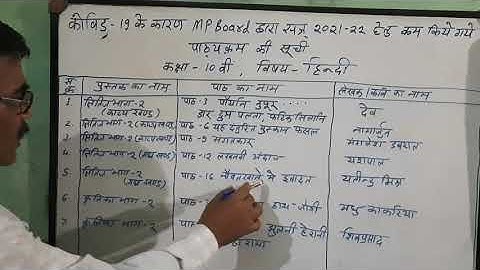 कोविड-19 के कारण MP Board द्वारा सत्र 2021-22 हेतु कम किये गये
पाठ्यक्रम की सूची
कक्षा-10वीं, विषय-हिन्दी
क्र. पुस्तक का नाम पाठ का नाम लेखक/कवि का नाम
1. क्षितिज भाग-2 पाठ-3 पाँयनि नूपुर ..... देव
(काव्य खण्ड) डार द्रुम पलना, फटिक सिलानि
2. क्षितिज भाग-2 (काव्यखण्ड) पाठ-6 यह दंतुरित मुस्कान फसल नागार्जुन
3. क्षितिज भाग-2 (काव्यखण्ड) पाठ-9 संगतकार मंगलेश डबराल
4. क्षितिज भाग-2 (गद्य खण्ड) पाठ-12 लखनवी अंदाज यशपाल
5. क्षितिज भाग-2 पाठ-16 नौबतखाने में इबादत यतीन्द्र मिश्र
(गद्य खण्ड)
6. कृतिका भाग-2 पाठ- हाथ जोड़ी मधु कांकरिया
7. कृतिका भाग-2 झुलनी हेरानी शिवप्रसाद